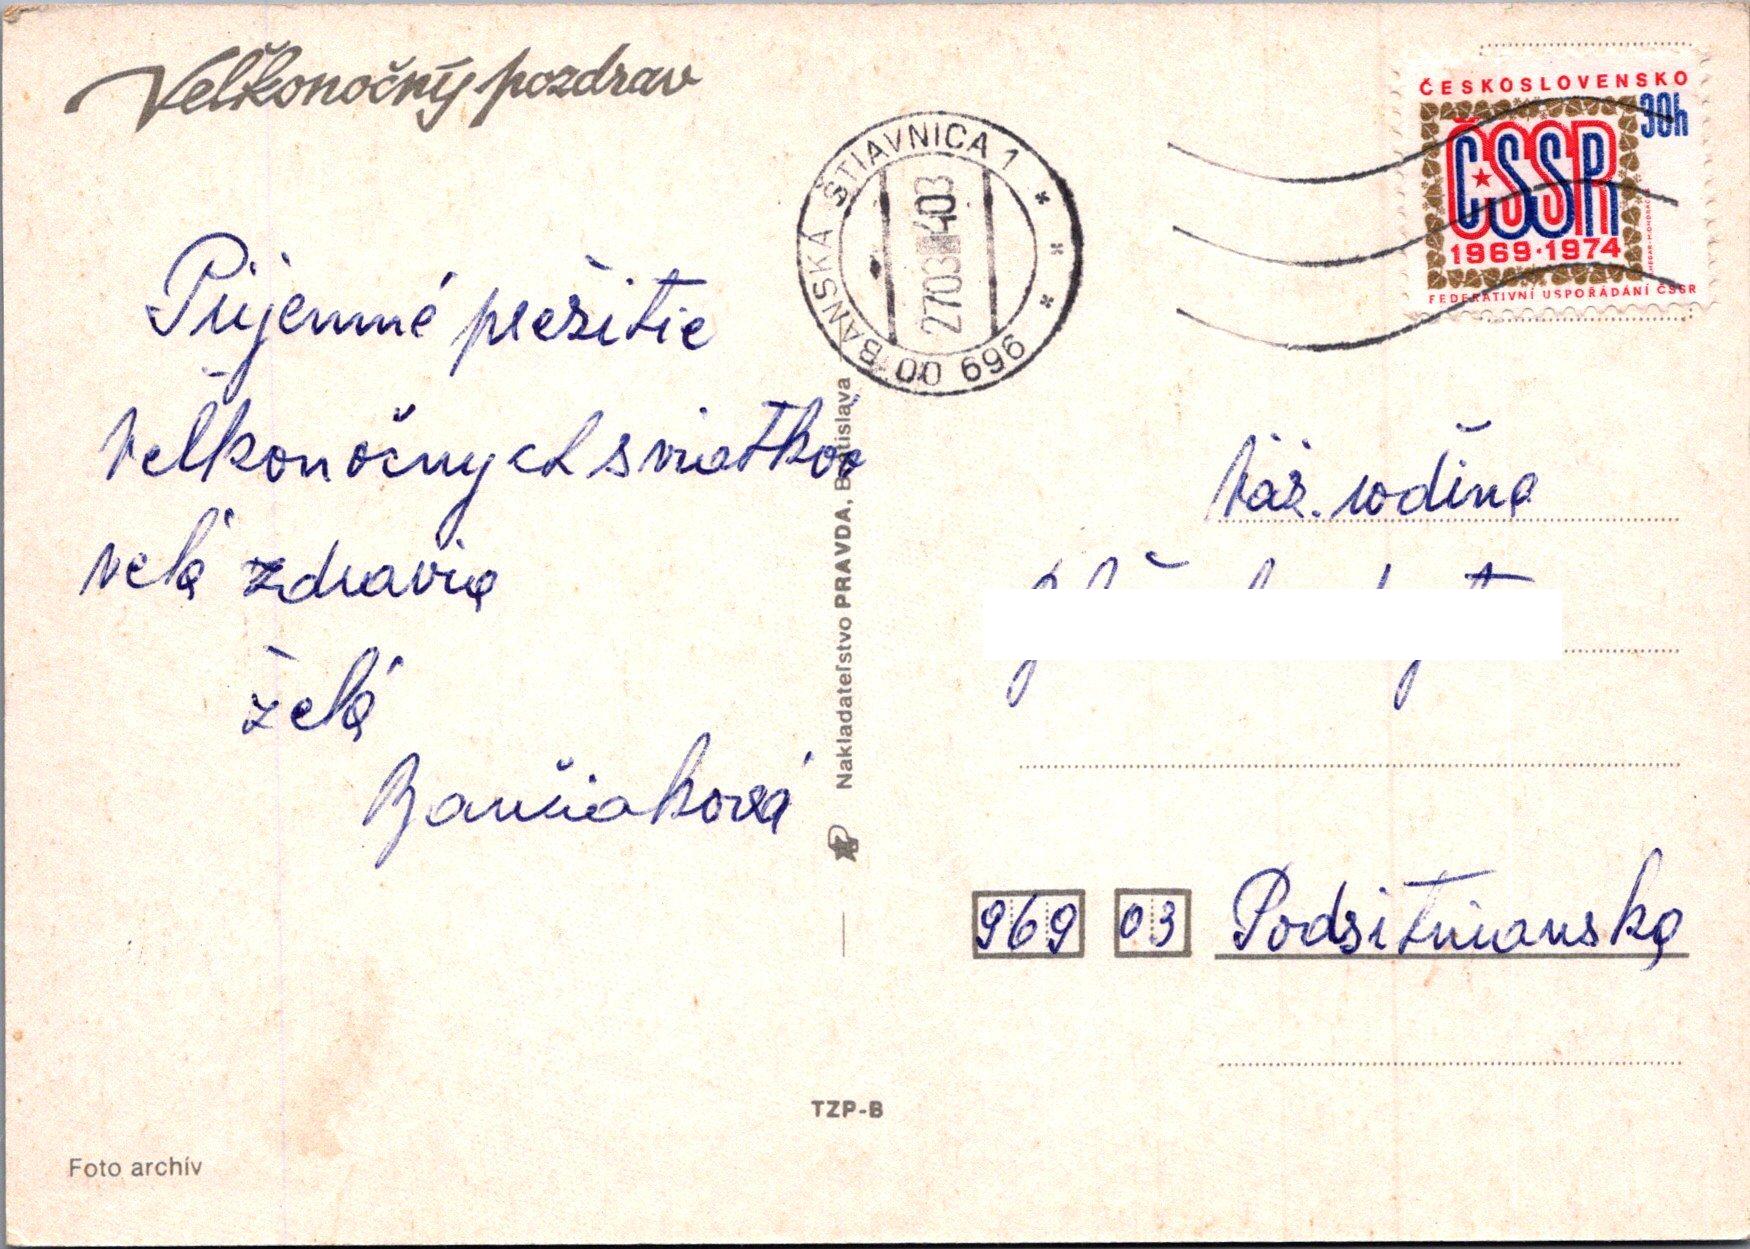 Veľkonočný pozdrav
Príjemné prežitie
veľkonočných sviatkov
veľa zdravia
želá
Bančiaková
Foto archív
Nakladateľstvo PRAVDA, Bratislava
TZP-B
BANSKÁ ŠTIAVNICA 1
969 00
ČESKOSLOVENSKO
30h
ČSSR
1969·1974
FEDERATIVNÍ USPOŘÁDÁNÍ ČSSR
Váž. rodina
969 03 Podsitnianska